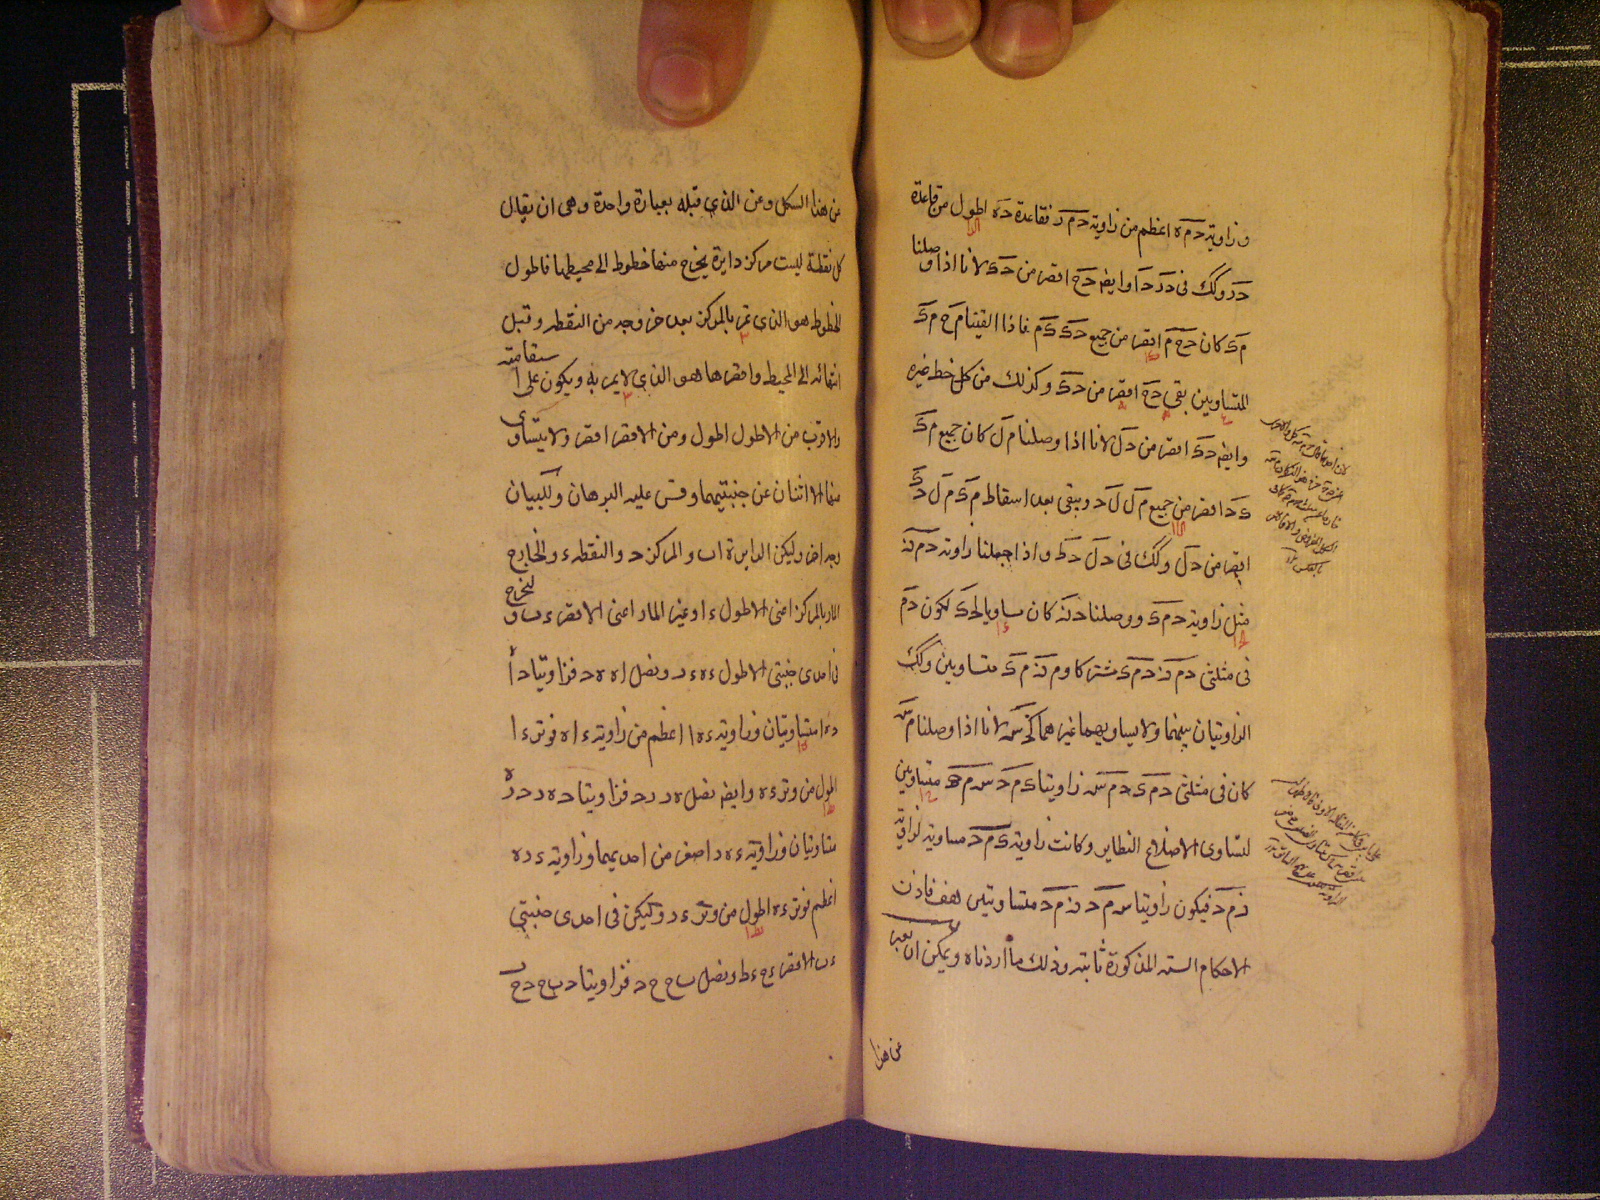 وزاوية دمه اعظم من زاوية دمر فقاعدة ده اطول من قاعدة
در وكك فى در دا وايضا دح اقصر من دك لانا اذا وصلنا
مك كان دح حم اقصر من جميع دك كم فاذا القينا مح مك
المتساويين بقى دح اقصر من دك وكذلك من كل خط غيره
وايضا دك اقصر من دل لانا اذا وصلنا مل كان جميع مك
كد اقصر من جميع مل لد ويبقى بعد اسقاط مك مل دك
اقصر من دل وكك فى دل دط واذا جعلنا زاوية دمن
مثل زاوية دمك ووصلنا دن كان مساويا لدك لكون دم
فى مثلثى دمن دمك مشتركا ومن مك متساويين وكك
الزاويتان بينهما ولا يساويهما غيرهما كدس لانا اذا وصلنا مس
كان فى مثلثى دمك دمس زاويتا كمد سمد متساويتين
لتساوى الاضلاع النظاير وكانت زاوية كمد مساوية لزاوية
نمد فيكون زاويتا سمد نمد متساويتين هف فاذن
الاحكام الستة المذكورة ثابتة وذلك ما اردناه ويمكن ان يعبر
عن هذا
عن هذا الشكل وعن الذى قبله بعبارة واحدة وهى ان يقال
كل نقطة ليست مركز دايرة يخرج منها خطوط الى محيطها فاطول
الخطوط هو الذى تمر بالمركز بعد خروجه من النقطة وقبل
انتهائه الى المحيط واقصرها هو الذى لا يمر به ويكون على استقامته
والاقرب من الاطول اطول ومن الاقصر اقصر ولا يتساوى
منها الا اثنان عن جنبتيهما وقس عليه البرهان وللبيان
وجه اخر وليكن الدايرة اب والمركز د والنقطة ء والخارج
المار بالمركز اعنى الاطول ءا وغير المار اعنى الاقصر ءب ولنخرج
فى احدى جنبتى الاطول ءه ءر ونصل اه هد فزاويتا داه
دها متساويتان وزاوية ءها اعظم من زاوية ءاه فوتر ءا
اطول من وتر ءه وايضا نصل هر رد فزاويتا دهر درہ
متساويتان وزاوية ءهر اصغر من احديهما وزاوية ءره
اعظم فوتر ءه اطول من وتر ءر وليكن فى احدى جنبتى
ءب الاقصر ءح ءط ونصل بح حد فزاويتا دبح دحب